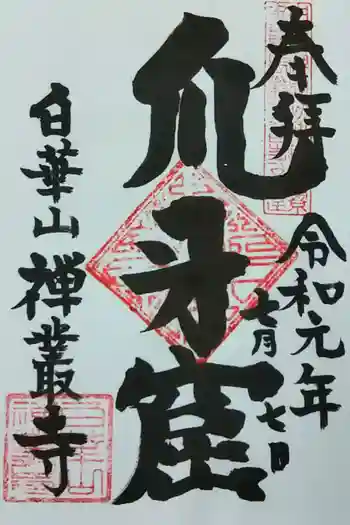 奉拝
令和元年
七月七日
爪牙窟
白華山
禅叢寺